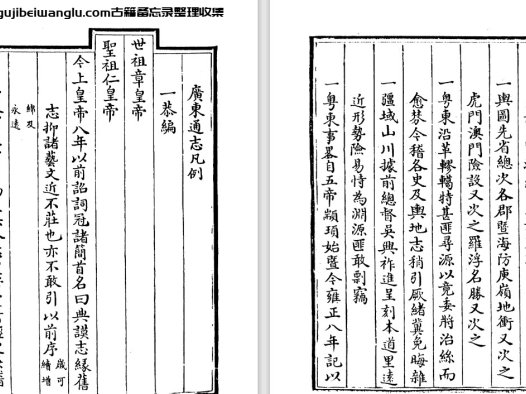 gujibeiwanglu.com古籍备忘录整理收集
廣東通志凡例
一恭編
世祖章皇帝
聖祖仁皇帝
今上皇帝八年以前詔詞冠諸簡首名曰典謨志緣舊
志抑諸藝文近不莊也亦不敢引以前序
歲可
續增
綿及
永遠
一輿圖先省總次各郡暨海防庾嶺地衝又次之
虎門澳門險設又次之羅浮名勝又次之
一粤東沿革轇轕特甚匪尋源以竟委將治絲而
愈棼今稽各史及輿地志稍引厥緒冀免晦雜
一疆域山川據前總督吳興祚進呈刻本道里遠
近形勢險易恃為淵源匪敢剽竊
一粤東事畧自五帝顓頊始暨今雍正八年記以